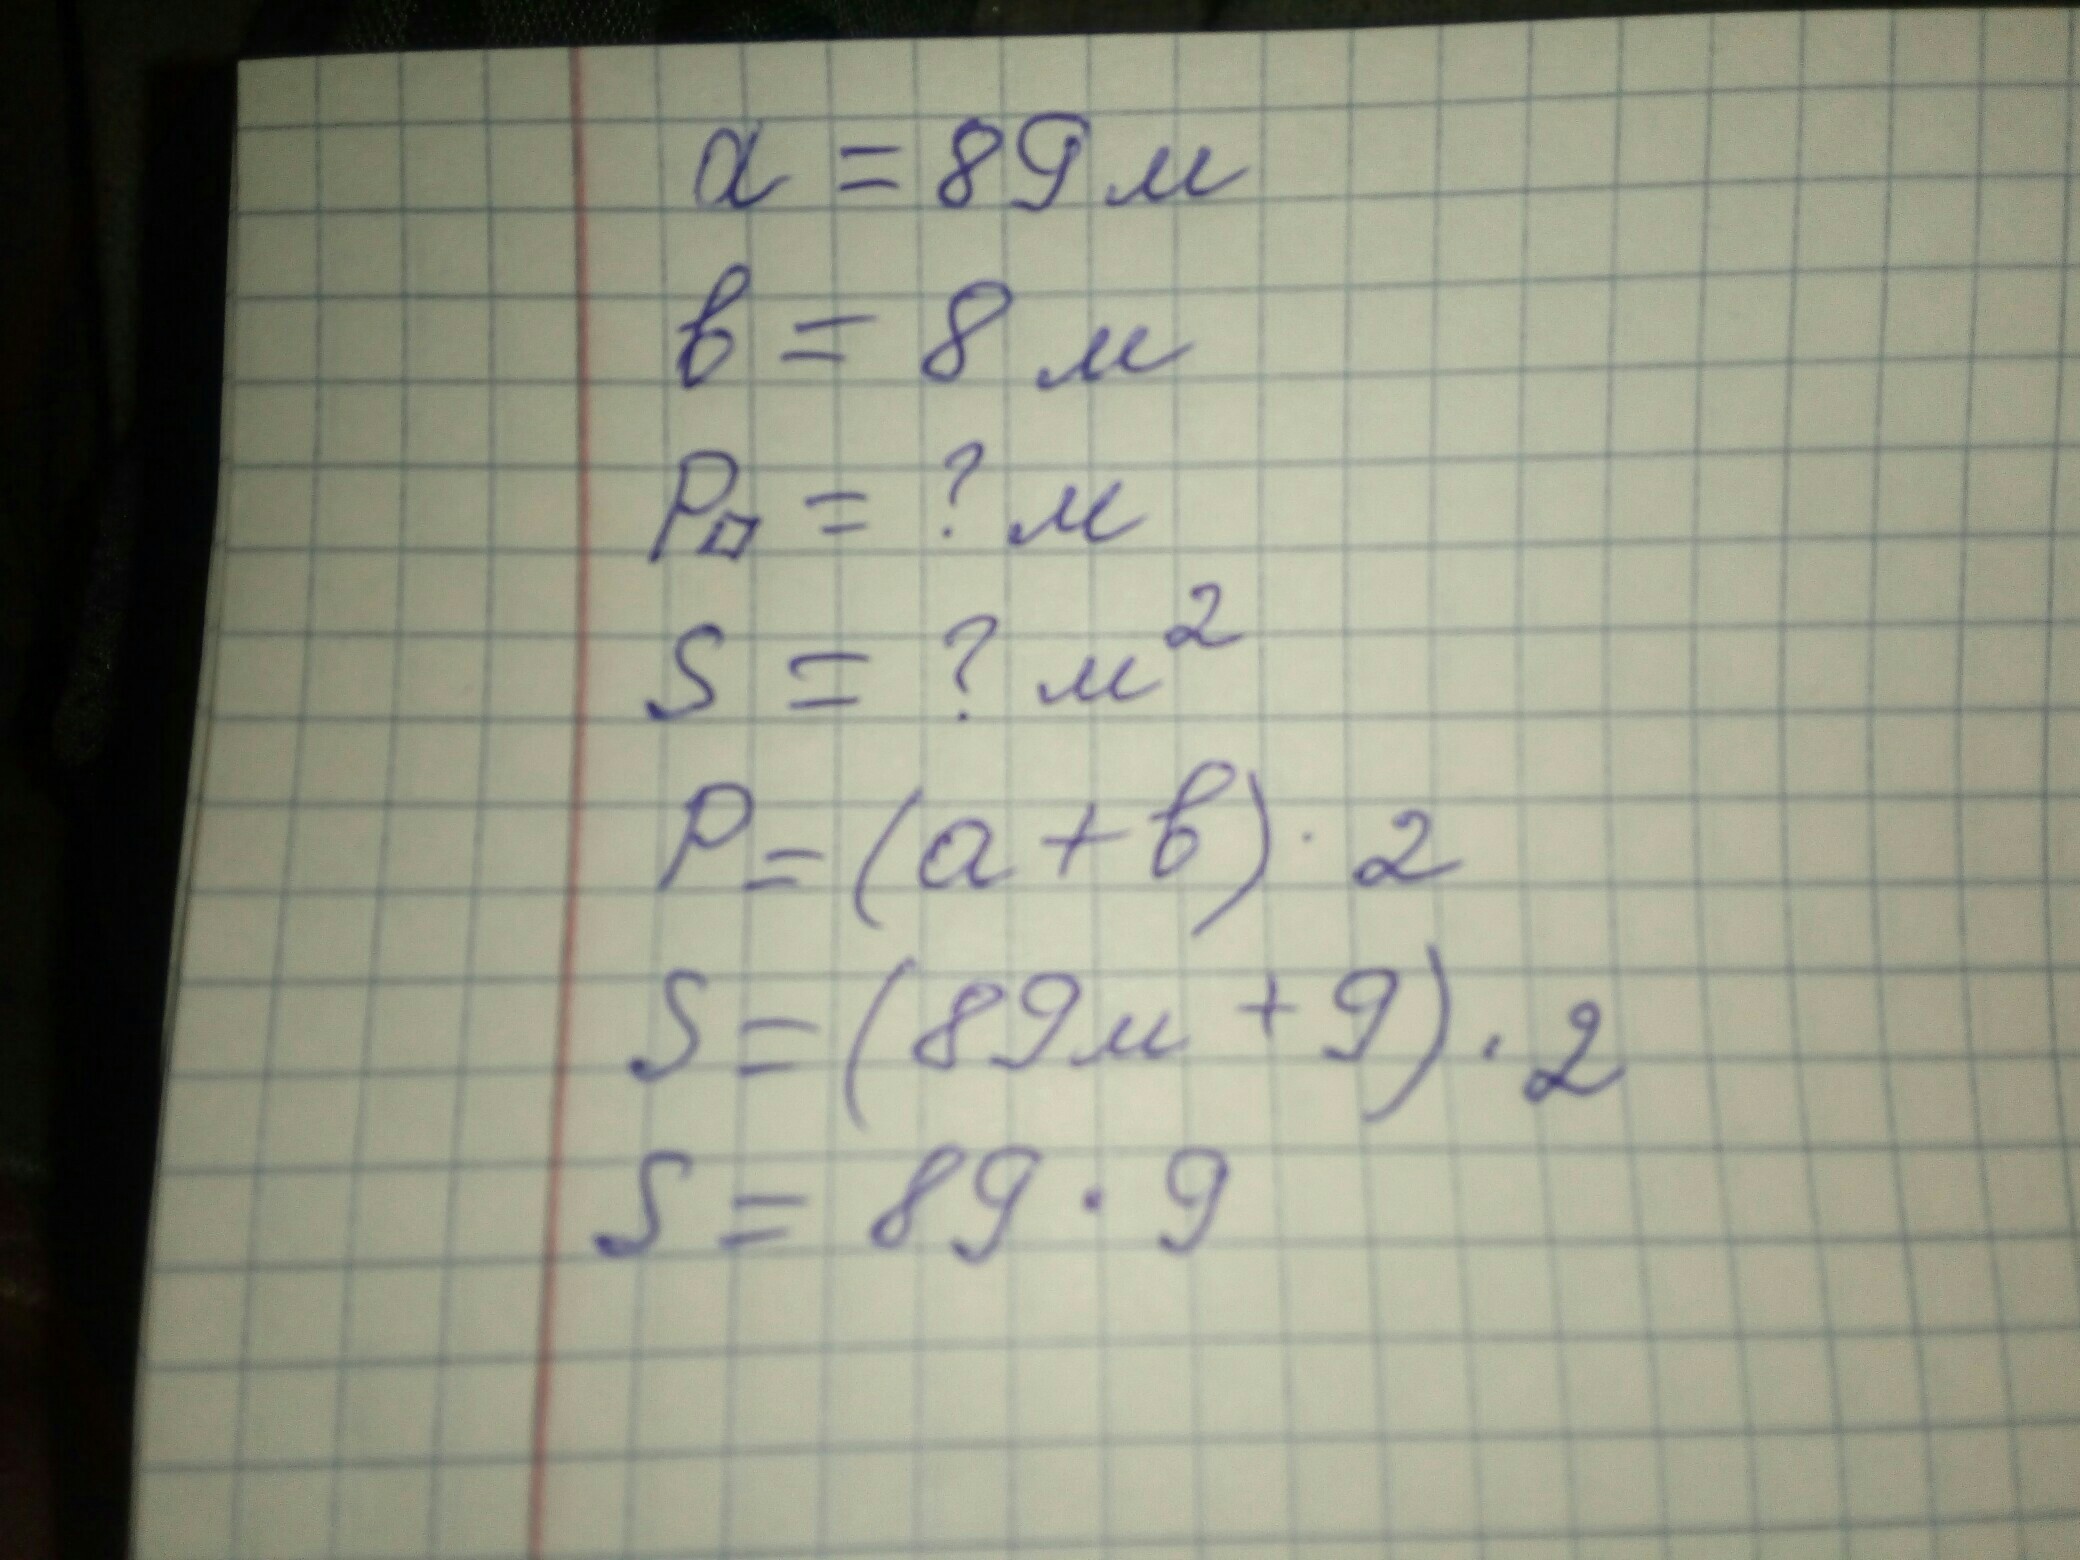 a = 89 м
в = 8 м
P▱ = ? м
S = ? м²
P = (a + в) · 2
S = (89 м + 9) · 2
S = 89 · 9